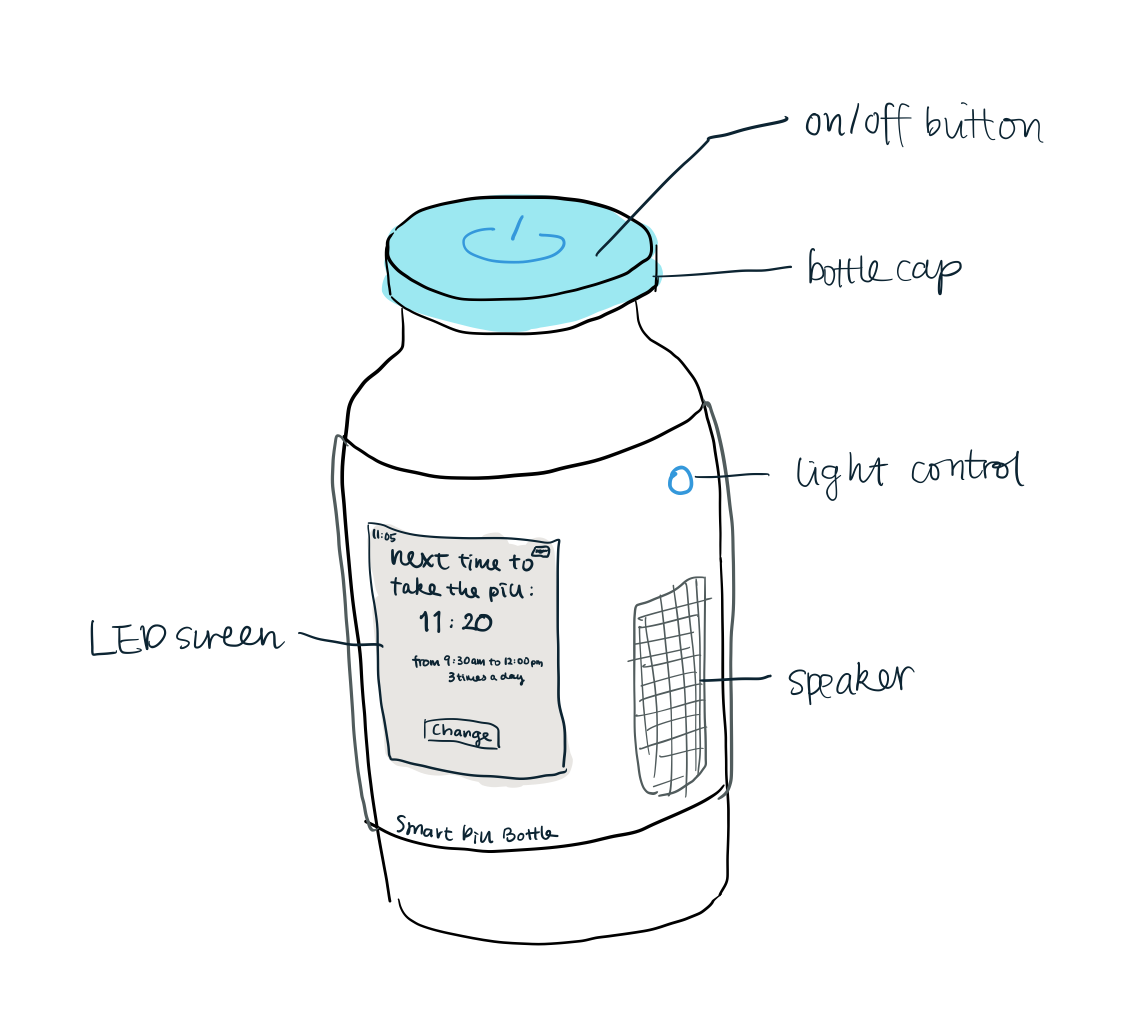 on/off button
bottle cap
light control
11:05
next time to
take the pill:
11:20
from 9:30am to 12:00pm
3 times a day
Change
LED screen
speaker
Smart Pill Bottle